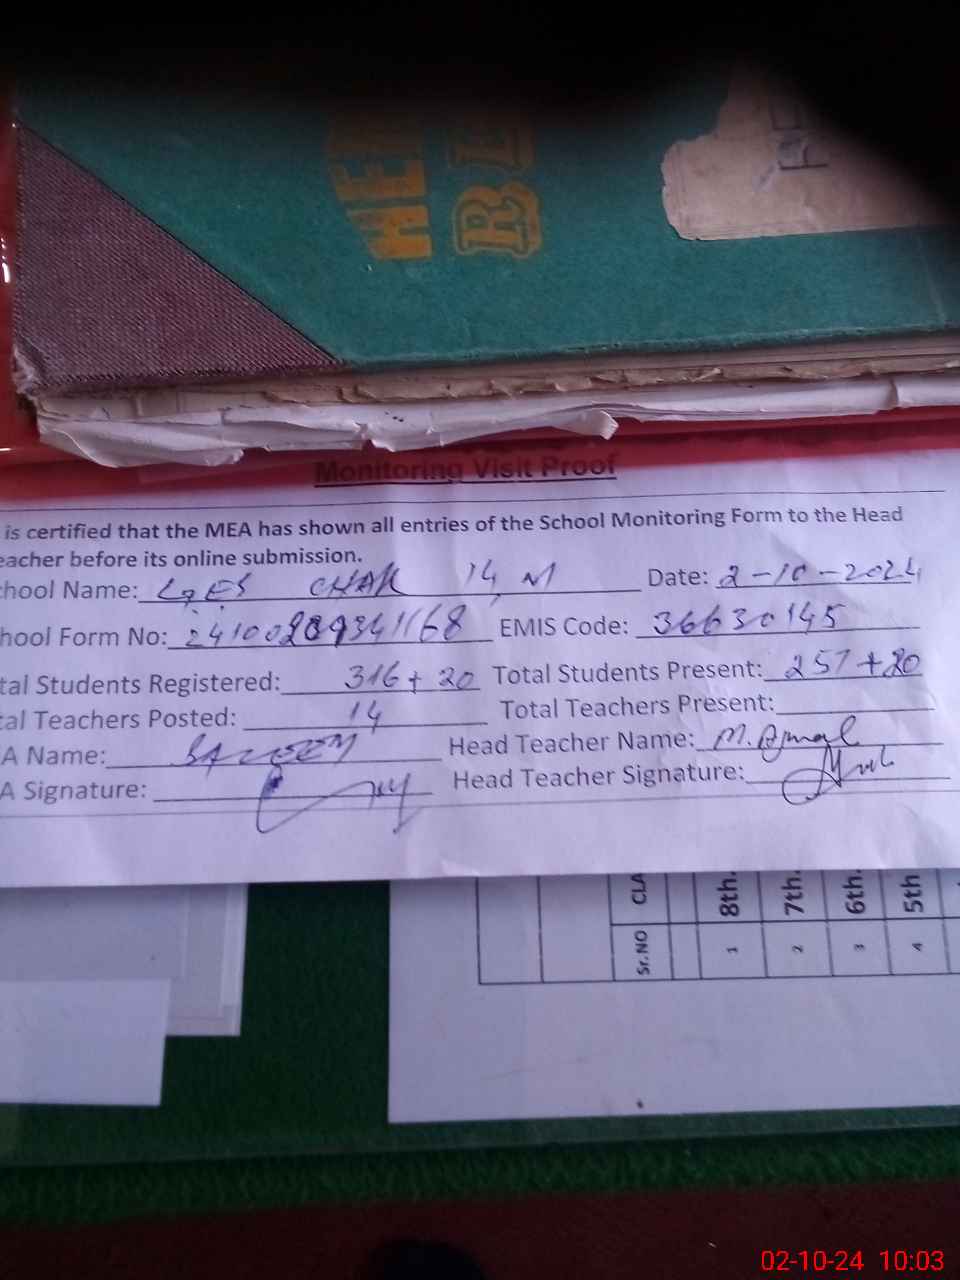 HE
RE
Monitoring Visit Proof
is certified that the MEA has shown all entries of the School Monitoring Form to the Head
eacher before its online submission.
chool Name: GES CHAK 14 M Date: 2-10-2024
hool Form No: EMIS Code: 36630145
tal Students Registered: 316+20 Total Students Present: 257+20
tal Teachers Posted: 14 Total Teachers Present:
A Name: Head Teacher Name: M. Ajmal
A Signature: Head Teacher Signature:
Sr.NO CLA
1 8th.
2 7th.
3 6th.
4 5th
02-10-24 10:03